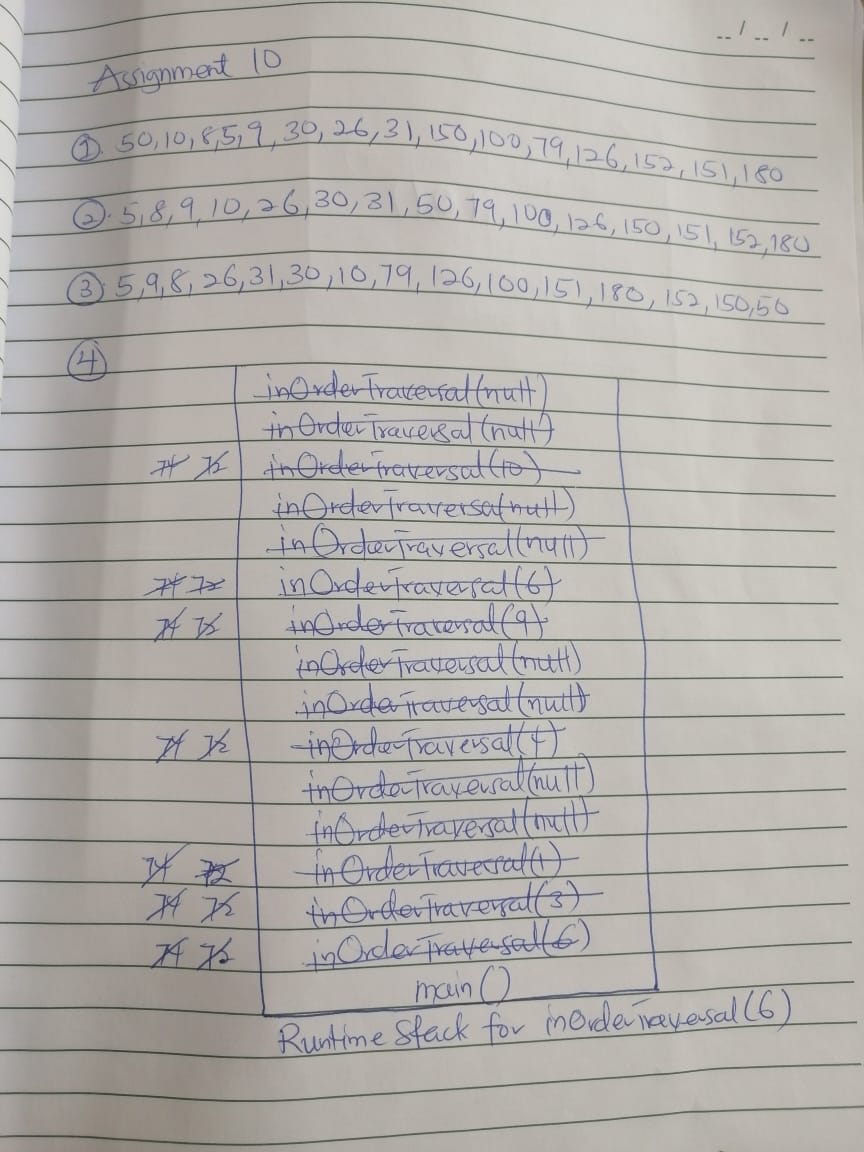 -- / -- / --
Assignment 10
① 50,10,8,5,9,30,26,31,150,100,79,126,152,151,180
②. 5,8,9,10,26,30,31,50,79,100,126,150,151,152,180
③ 5,9,8,26,31,30,10,79,126,100,151,180,152,150,50
④
inOrderTraversal(null)
inOrderTraversal(null)
74 72 inOrderTraversal(10)
inOrderTraversal(null)
inOrderTraversal(null)
74 72 inOrderTraversal(6)
74 72 inOrderTraversal(9)
inOrderTraversal(null)
inOrderTraversal(null)
74 72 inOrderTraversal(4)
inOrderTraversal(null)
inOrderTraversal(null)
74 72 inOrderTraversal(1)
74 72 inOrderTraversal(3)
74 72 inOrderTraversal(6)
main()
Runtime Stack for inOrderTraversal(6)